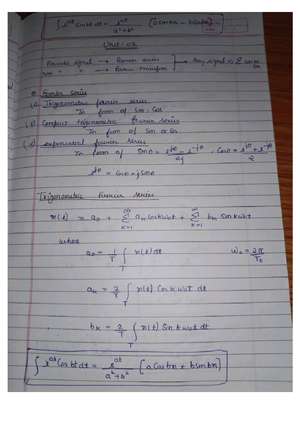 ∫ e^at Sin bt dt = e^at / a²+b² [a Sin bn − b Cos bn]
Unit-02
Periodic signal → Fourier series
Non " " → Fourier transform
Any signal is Σ Sin or Cos
① Fourier series
(a) Trigonometric fourier series
In form of Sin - Cos
(b) Compact trigonometric fourier series
In form of Sin or Cos
(c) exponential fourier series
In form of Sinθ = e^jθ − e^-jθ / 2j , Cosθ = e^jθ + e^-jθ / 2
e^jθ = Cosθ + j Sinθ
Trigonometric Fourier Series
x(t) = a₀ + Σ_{K=1}^{∞} aₖ Cos kω₀t + Σ_{K=1}^{∞} bₖ Sin kω₀t
where
a₀ = 1/T ∫_T x(t) dt ω₀ = 2π/T₀
aₖ = 2/T ∫_T x(t) Cos kω₀t dt
bₖ = 2/T ∫_T x(t) Sin kω₀t dt
∫ e^at Cos bt dt = e^at / a²+b² [a Cos bn + b Sin bn]